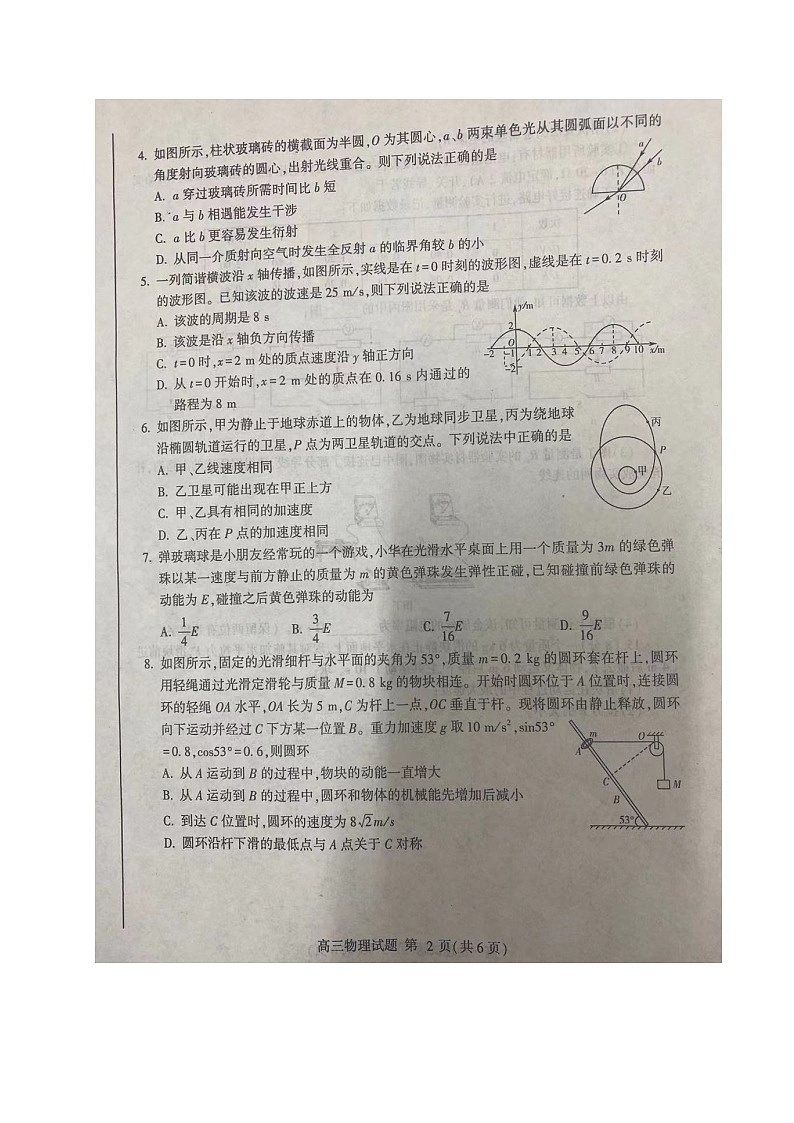 4. 如图所示,柱状玻璃砖的横截面为半圆,O为其圆心,a、b两束单色光从其圆弧面以不同的
角度射向玻璃砖的圆心,出射光线重合。则下列说法正确的是
A. a穿过玻璃砖所需时间比b短
B. a与b相遇能发生干涉
C. a比b更容易发生衍射
D. 从同一介质射向空气时发生全反射a的临界角较b的小
a
b
O
5. 一列简谐横波沿x轴传播,如图所示,实线是在t=0时刻的波形图,虚线是在t=0.2 s时刻
的波形图。已知该波的波速是25 m/s,则下列说法正确的是
A. 该波的周期是8 s
B. 该波是沿x轴负方向传播
C. t=0时,x=2 m处的质点速度沿y轴正方向
D. 从t=0开始时,x=2 m处的质点在0.16 s内通过的
路程为8 m
y/m
2
O
-2 -1 1 2 3 4 5 6 7 8 9 10 x/m
-2
6. 如图所示,甲为静止于地球赤道上的物体,乙为地球同步卫星,丙为绕地球
沿椭圆轨道运行的卫星,P点为两卫星轨道的交点。下列说法中正确的是
A. 甲、乙线速度相同
B. 乙卫星可能出现在甲正上方
C. 甲、乙具有相同的加速度
D. 乙、丙在P点的加速度相同
丙
P
甲
乙
7. 弹玻璃球是小朋友经常玩的一个游戏,小华在光滑水平桌面上用一个质量为3m的绿色弹
珠以某一速度与前方静止的质量为m的黄色弹珠发生弹性正碰,已知碰撞前绿色弹珠的
动能为E,碰撞之后黄色弹珠的动能为
A. 1/4 E B. 3/4 E C. 7/16 E D. 9/16 E
8. 如图所示,固定的光滑细杆与水平面的夹角为53°,质量m=0.2 kg的圆环套在杆上,圆环
用轻绳通过光滑定滑轮与质量M=0.8 kg的物块相连。开始时圆环位于A位置时,连接圆
环的轻绳OA水平,OA长为5 m,C为杆上一点,OC垂直于杆。现将圆环由静止释放,圆环
向下运动并经过C下方某一位置B。重力加速度g取10 m/s²,sin53°
=0.8,cos53°=0.6,则圆环
A. 从A运动到B的过程中,物块的动能一直增大
B. 从A运动到B的过程中,圆环和物体的机械能先增加后减小
C. 到达C位置时,圆环的速度为8√2m/s
D. 圆环沿杆下滑的最低点与A点关于C对称
m
O
A
C
M
B
53°
高三物理试题 第 2 页(共6页)